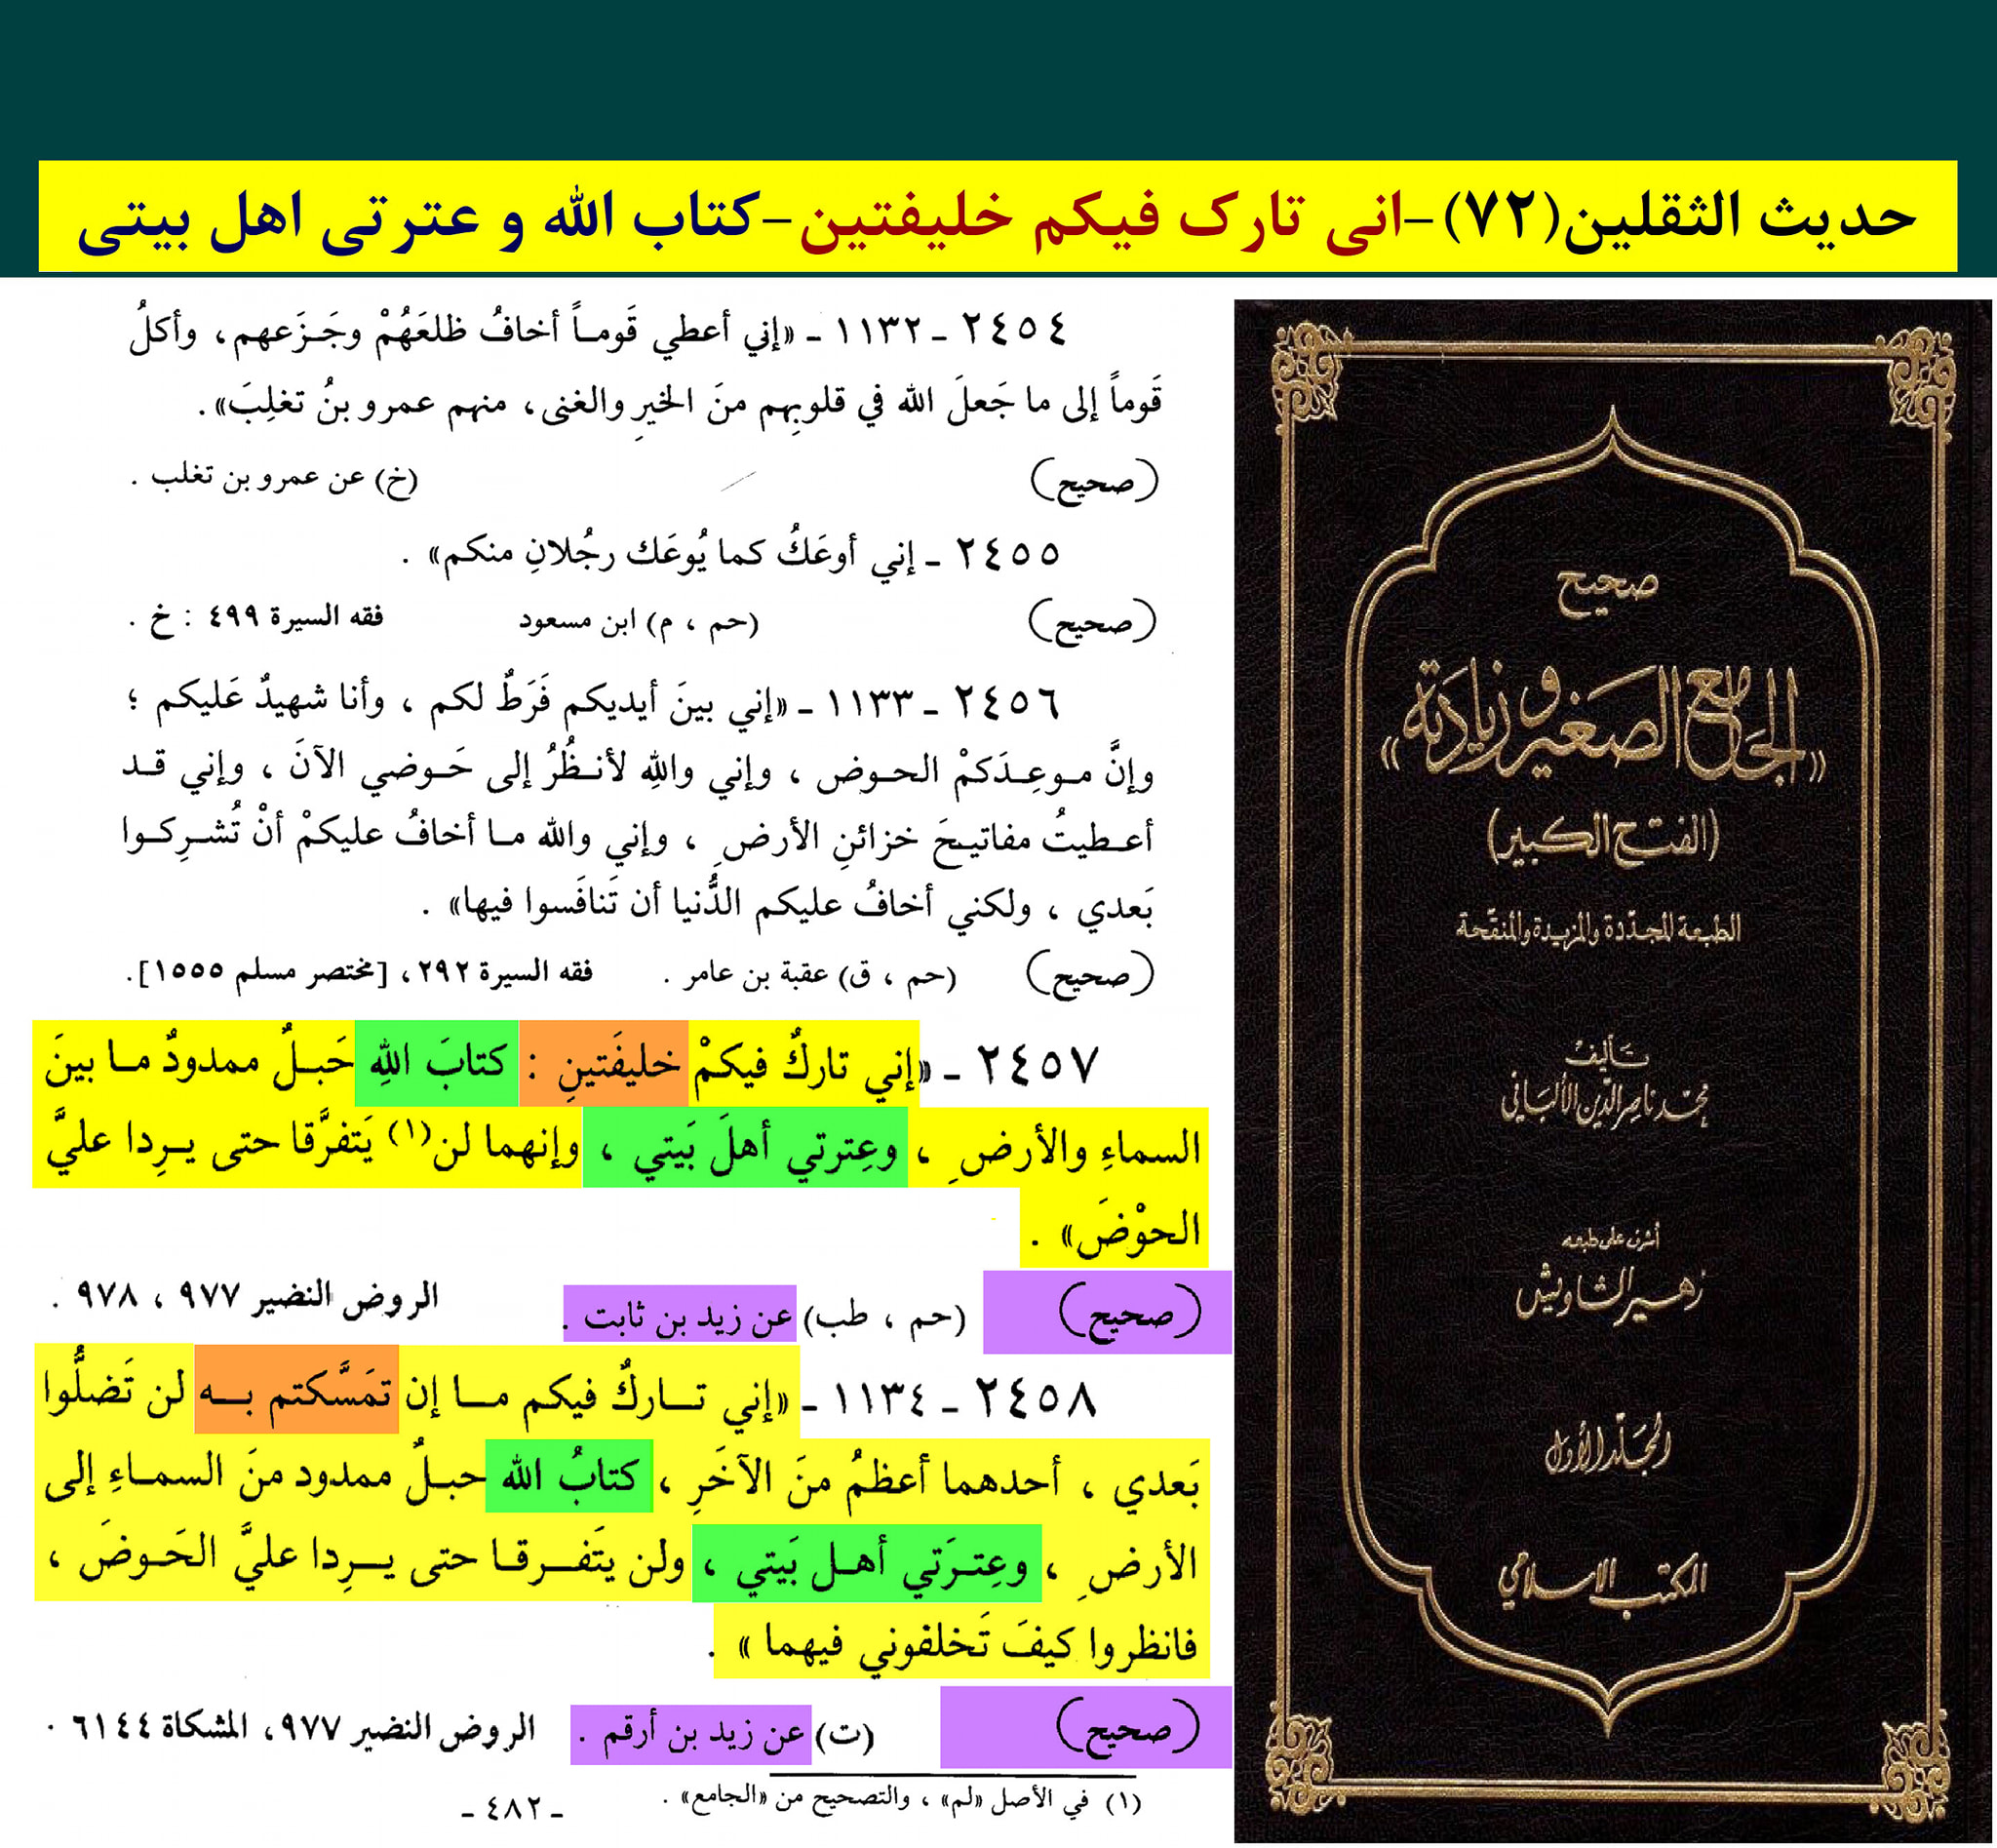 حدیث الثقلین(۷۲)-انی تارک فیکم خلیفتین-کتاب الله و عترتی اهل بیتی
٢٤٥٤ - ١١٣٢ - «إني أعطي قَوماً أخافُ ظلعَهُمْ وجَزَعهم، وأكلُ
قَوماً إلى ما جَعلَ الله في قلوبِهم منَ الخيرِ والغنى، منهم عمرو بنُ تغلِبَ».
(صحيح) (خ) عن عمرو بن تغلب .
٢٤٥٥ - إني أوعَكُ كما يُوعَك رجُلانِ منكم» .
(صحيح) (حم ، م) ابن مسعود فقه السيرة ٤٩٩ : خ .
٢٤٥٦ - ١١٣٣ - «إني بينَ أيديكم فَرَطٌ لكم ، وأنا شهيدٌ عَليكم ؛
وإنَّ موعِدَكمْ الحوض ، وإني واللهِ لأنظُرُ إلى حَوضي الآنَ ، وإني قد
أعطيتُ مفاتيحَ خزائنِ الأرضِ ، وإني والله ما أخافُ عليكمْ أنْ تُشرِكوا
بَعدي ، ولكني أخافُ عليكم الدُّنيا أن تَنافَسوا فيها» .
(صحيح) (حم ، ق) عقبة بن عامر . فقه السيرة ٢٩٢، [مختصر مسلم ١٥٥٥].
٢٤٥٧ - «إني تاركٌ فيكمْ خليفَتينِ : كتابَ اللهِ حَبلٌ ممدودٌ ما بينَ
السماءِ والأرضِ ، وعِترتي أهلَ بَيتي ، وإنهما لن(١) يَتفرَّقا حتى يرِدا عليَّ
الحوْضَ» .
(صحيح) (حم ، طب) عن زيد بن ثابت . الروض النضير ٩٧٧ ، ٩٧٨ .
٢٤٥٨ - ١١٣٤ - «إني تاركٌ فيكم ما إن تمَسَّكتم به لن تَضلُّوا
بَعدي ، أحدهما أعظمُ منَ الآخَرِ ، كتابُ الله حبلٌ ممدود منَ السماءِ إلى
الأرضِ ، وعِترَتي أهل بَيتي ، ولن يتَفرقا حتى يرِدا عليَّ الحَوضَ ،
فانظروا كيفَ تَخلفوني فيهما » .
(صحيح) (ت) عن زيد بن أرقم . الروض النضير ٩٧٧، المشكاة ٦١٤٤ .
(١) في الأصل «لم» ، والتصحيح من «الجامع» .
- ٤٨٢ -
صحيح
«الجامع الصغير وزيادته»
(الفتح الكبير)
الطبعة المجدّدة والمزيدة والمنقّحة
تأليف
محمد ناصر الدين الألباني
أشرف على طبعه
زهير الشاويش
المجلد الأول
المكتب الإسلامي